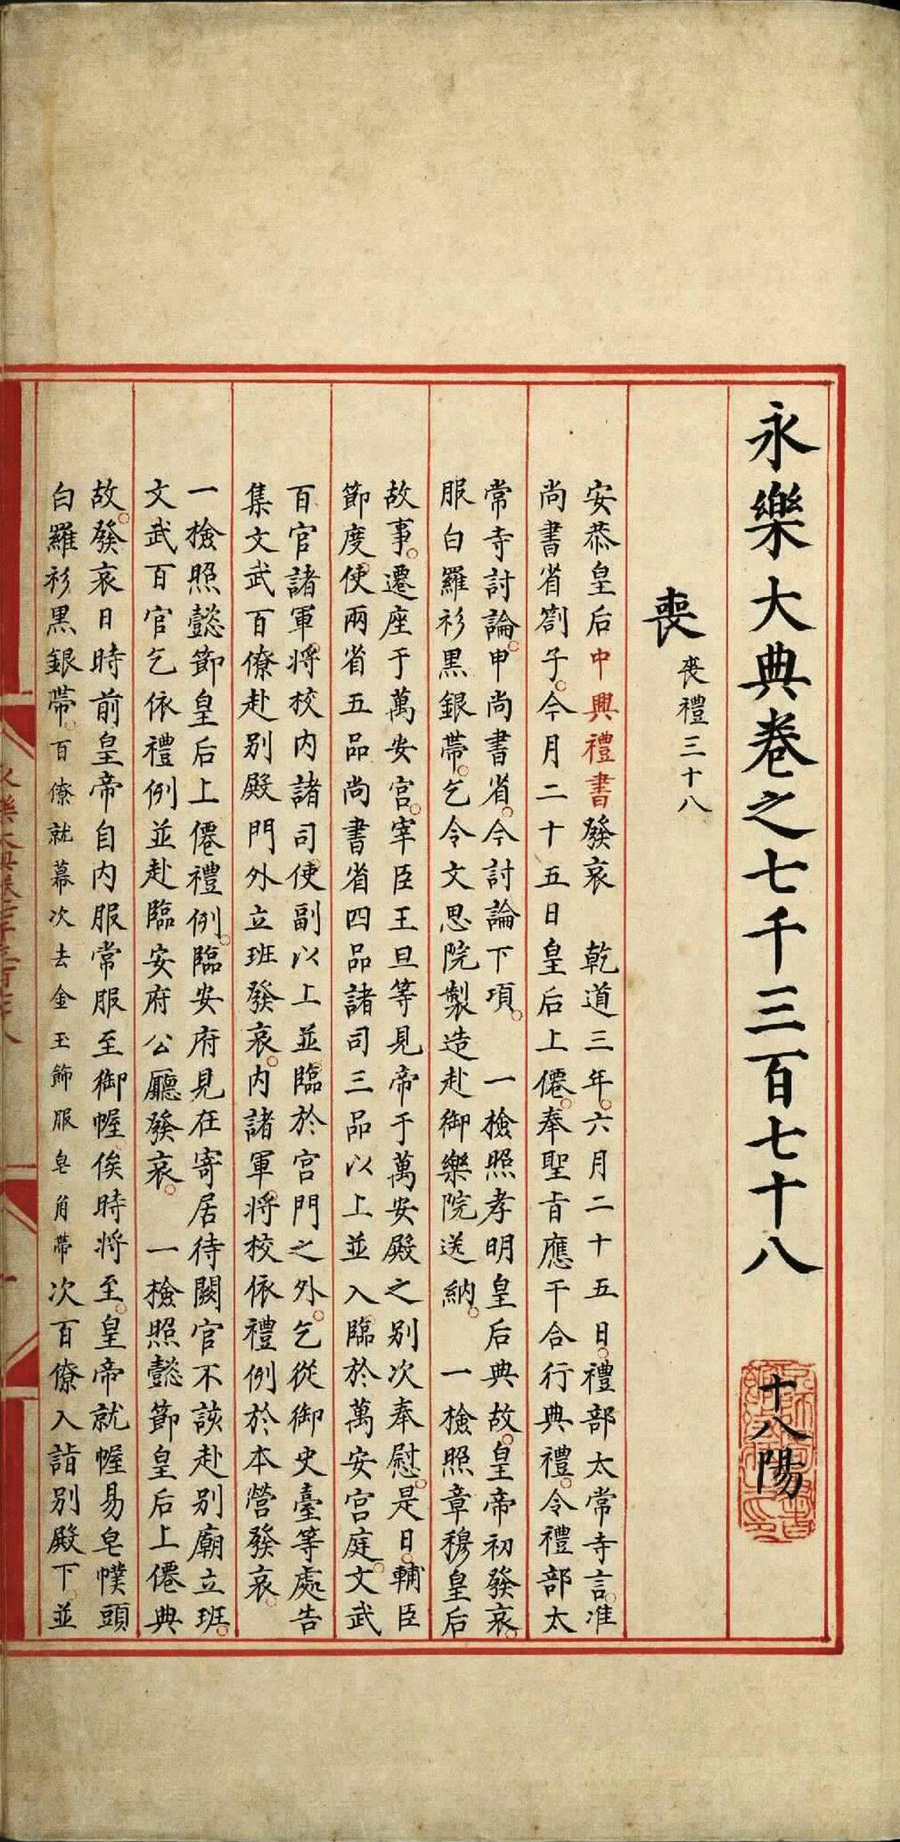 永樂大典卷之七千三百七十八
十八陽
喪
喪禮三十八
安恭皇后中興禮書發哀　乾道三年六月二十五日禮部太常寺言准
尚書省劄子今月二十五日皇后上僊奉聖旨應干合行典禮令禮部太
常寺討論申尚書省今討論下項　一檢照孝明皇后典故皇帝初發哀
服白羅衫黑銀帶乞令文思院製造赴御藥院送納　一檢照章穆皇后
故事遷座于萬安宮宰臣王旦等見帝于萬安殿之別次奉慰是日輔臣
節度使兩省五品尚書省四品諸司三品以上並入臨於萬安宮庭文武
百官諸軍將校內諸司使副以上並臨於宮門之外乞從御史臺等處告
集文武百僚赴別殿門外立班發哀內諸軍將校依禮例於本營發哀
一檢照懿節皇后上僊禮例臨安府見在寄居待闕官不該赴別廟立班
文武百官乞依禮例並赴臨安府公廳發哀　一檢照懿節皇后上僊典
故發哀日時前皇帝自內服常服至御幄俟時將至皇帝就幄易皂幞頭
白羅衫黑銀帶百僚就幕次去金玉飾服皂角帶次百僚入詣別殿下並